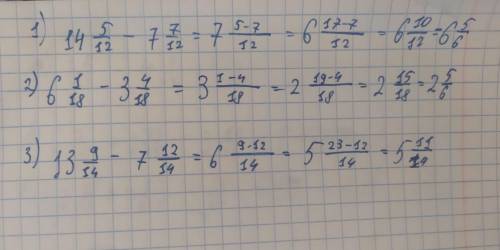 1) 14 5/12 - 7 7/12 = 7 5-7/12 = 6 17-7/12 = 6 10/12 = 6 5/6
2) 6 1/18 - 3 4/18 = 3 1-4/18 = 2 19-4/18 = 2 15/18 = 2 5/6
3) 13 9/14 - 7 12/14 = 6 9-12/14 = 5 23-12/14 = 5 11/14